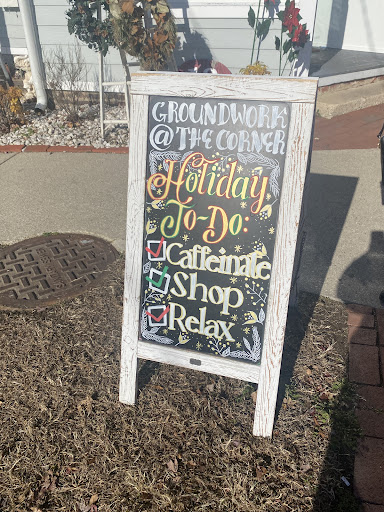 GROUNDWORK
@ THE CORNER
Holiday
To-Do:
Caffeinate
Shop
Relax